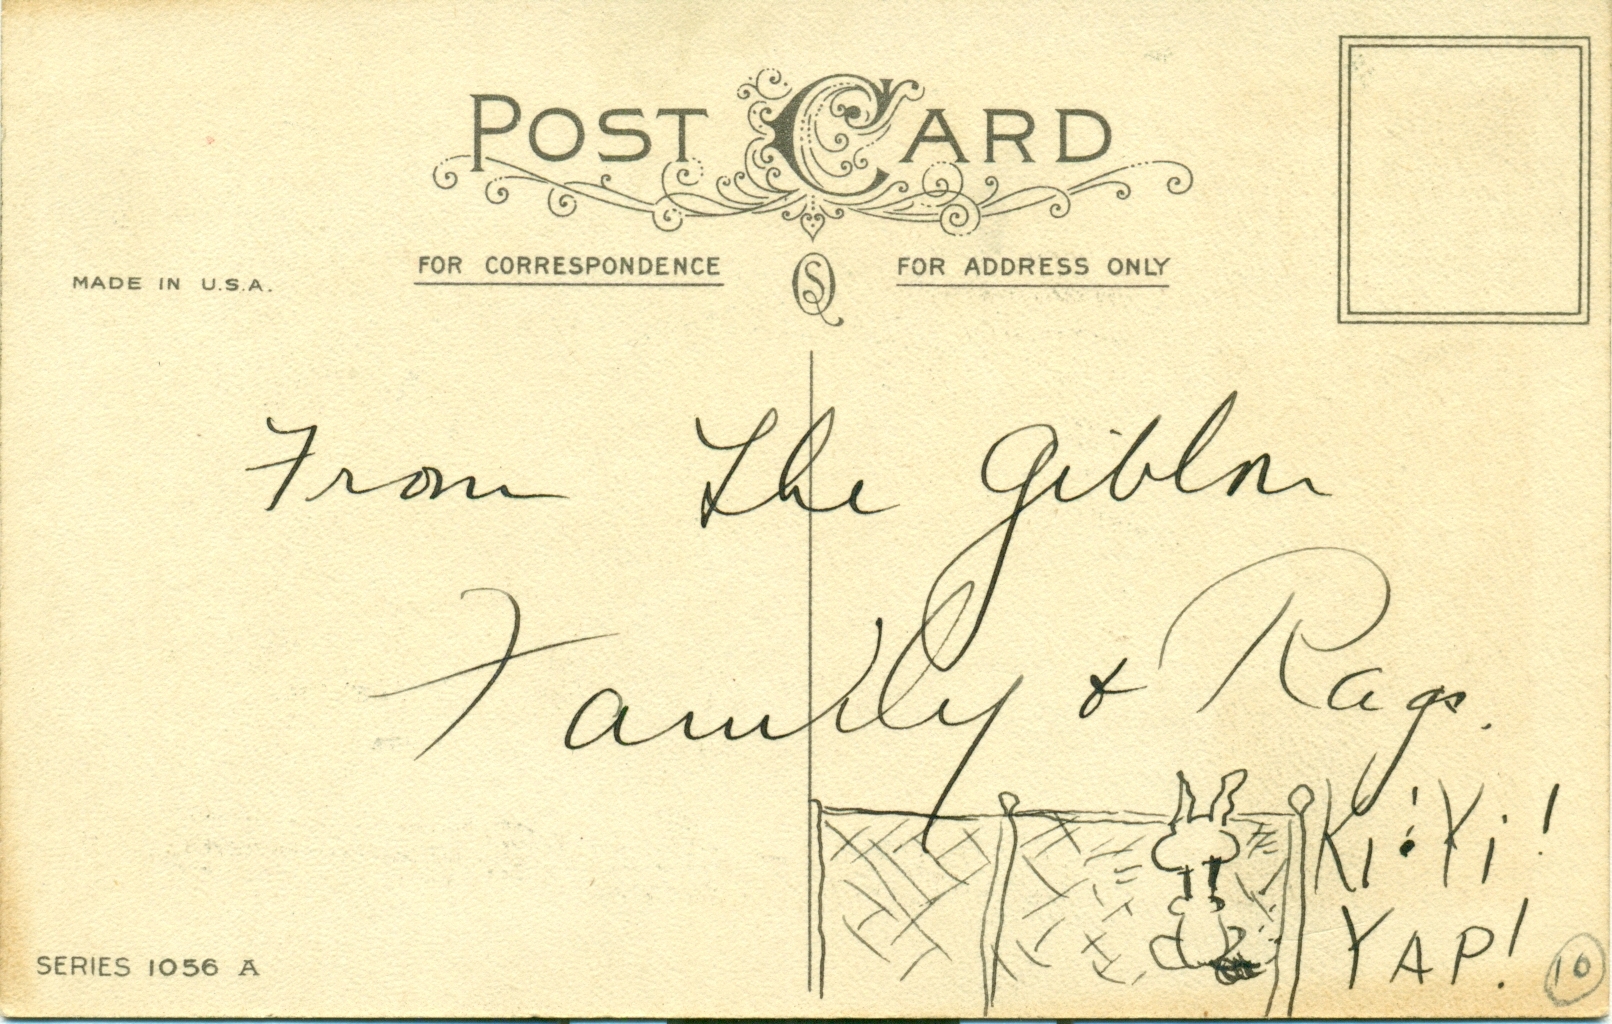 POST CARD
FOR CORRESPONDENCE
FOR ADDRESS ONLY
MADE IN U.S.A.
From the Giblon
Family & Rags.
Ki! Yi!
YAP!
SERIES 1056 A
10